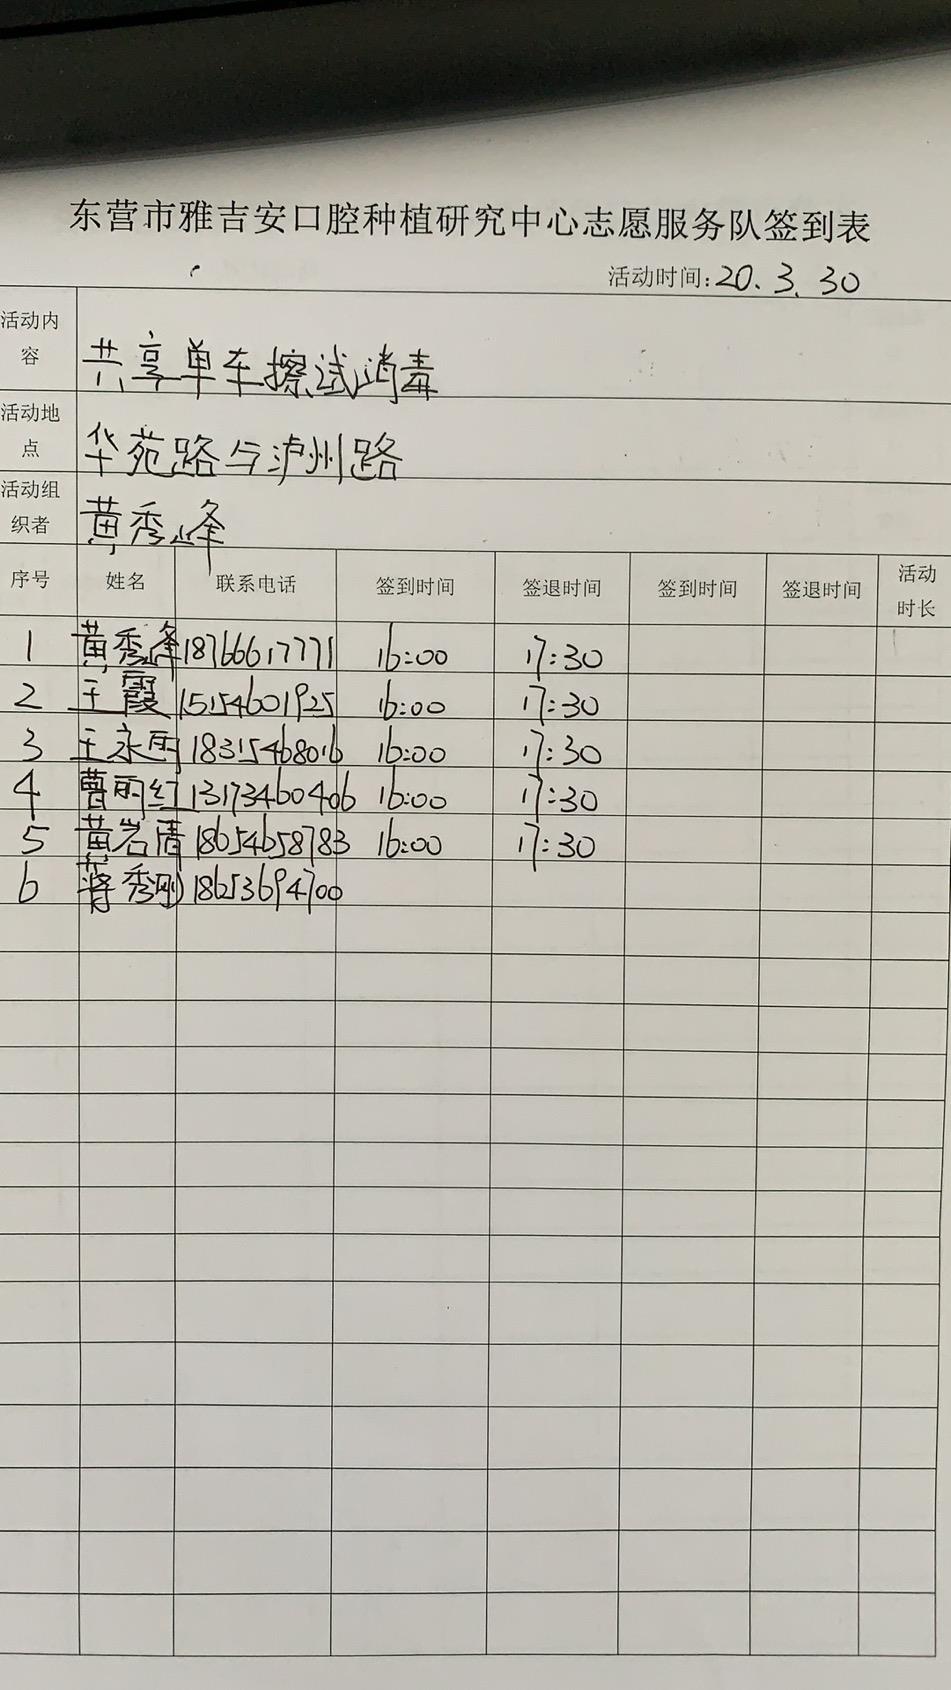 东营市雅吉安口腔种植研究中心志愿服务队签到表
活动时间:20.3.30
活动内容 共享单车擦试消毒
活动地点 华苑路与泸州路
活动组织者 黄秀峰
序号 姓名 联系电话 签到时间 签退时间 签到时间 签退时间 活动时长
1 黄秀峰 18766617771 16:00 17:30
2 王霞 15154601925 16:00 17:30
3 王永丽 18315468016 16:00 17:30
4 曹丽红 13173460406 16:00 17:30
5 黄岩 18654658783 16:00 17:30
6 蒋秀刚 18253694700